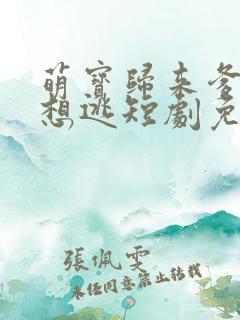 萌寶歸来爹
想逃短劇免
張佩雯
未任同意禁止转载